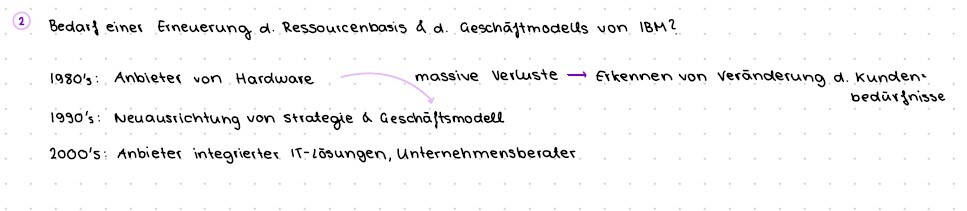 ② Bedarf einer Erneuerung d. Ressourcenbasis & d. Geschäftmodells von IBM?
1980's: Anbieter von Hardware massive Verluste → Erkennen von Veränderung d. Kunden-
bedürfnisse
1990's: Neuausrichtung von Strategie & Geschäftsmodell
2000's: Anbieter integrierter IT-Lösungen, Unternehmensberater